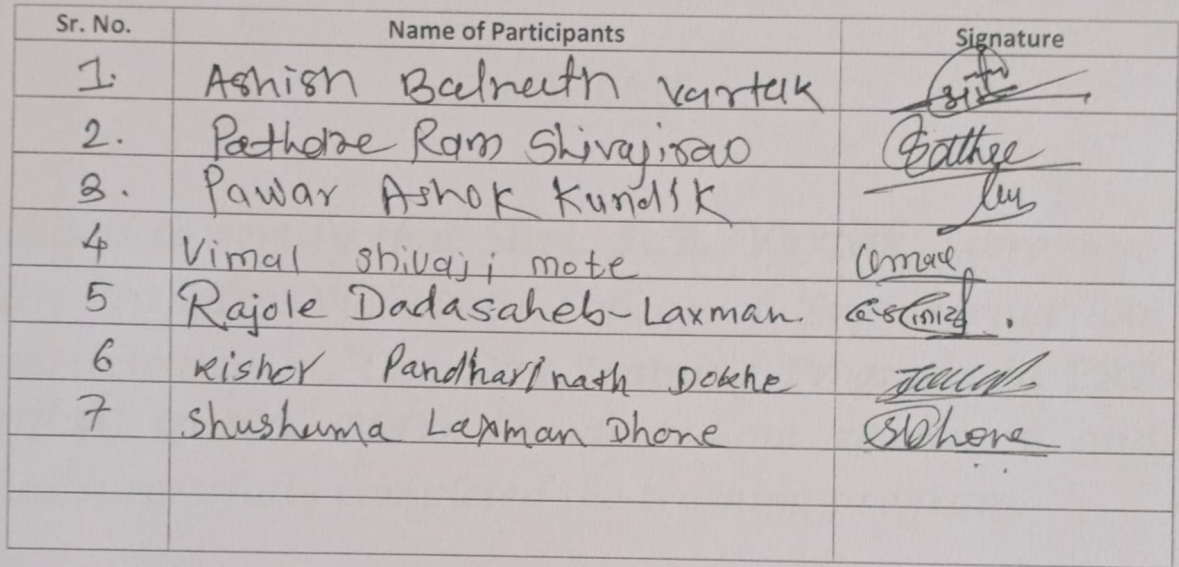 Sr. No. Name of Participants Signature
1. Ashish Balnath Vartak
2. Pathare Ram Shivajirao
3. Pawar Ashok Kundlik
4 Vimal Shivaji mote
5 Rajole Dadasaheb-Laxman.
6 Kishor Pandharinath Dokhe
7 Shushuma Laxman Dhone SDhone